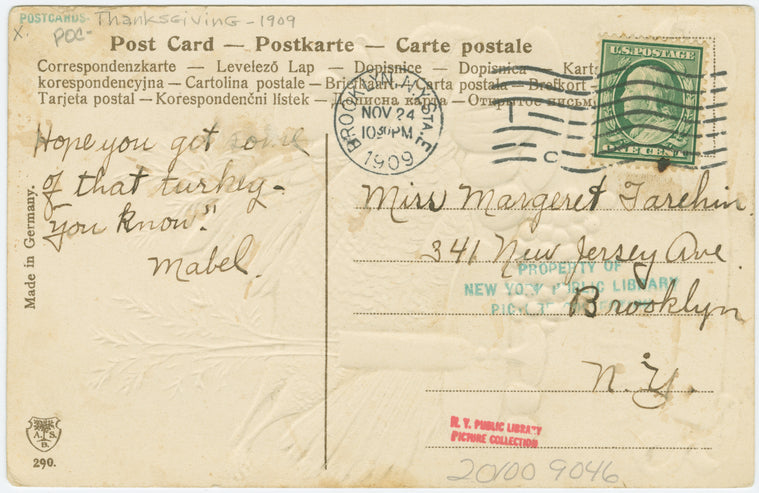 POSTCARDS- Thanksgiving - 1909
X. POC-
Post Card — Postkarte — Carte postale
Correspondenzkarte — Levelező Lap — Dopisnice — Dopisnica
korespondencyjna — Cartolina postale — Briefkaart — Carta postala — Brefkort
Tarjeta postal — Korespondenční lístek — Дописна карта — Открытое письмо
U.S. POSTAGE
ONE CENT
BROOKLYN, N.Y. STA. E
NOV 24
10 30 PM
1909
C
Hope you get some
of that turkey -
"you know."
Mabel.
Made in Germany.
Miss Margeret
341 New Jersey Ave.
Brooklyn
N.Y.
PROPERTY OF
NEW YORK PUBLIC LIBRARY
PICTURE COLLECTION
N. Y. PUBLIC LIBRARY
PICTURE COLLECTION
A. S.
B.
290.
20100 9046